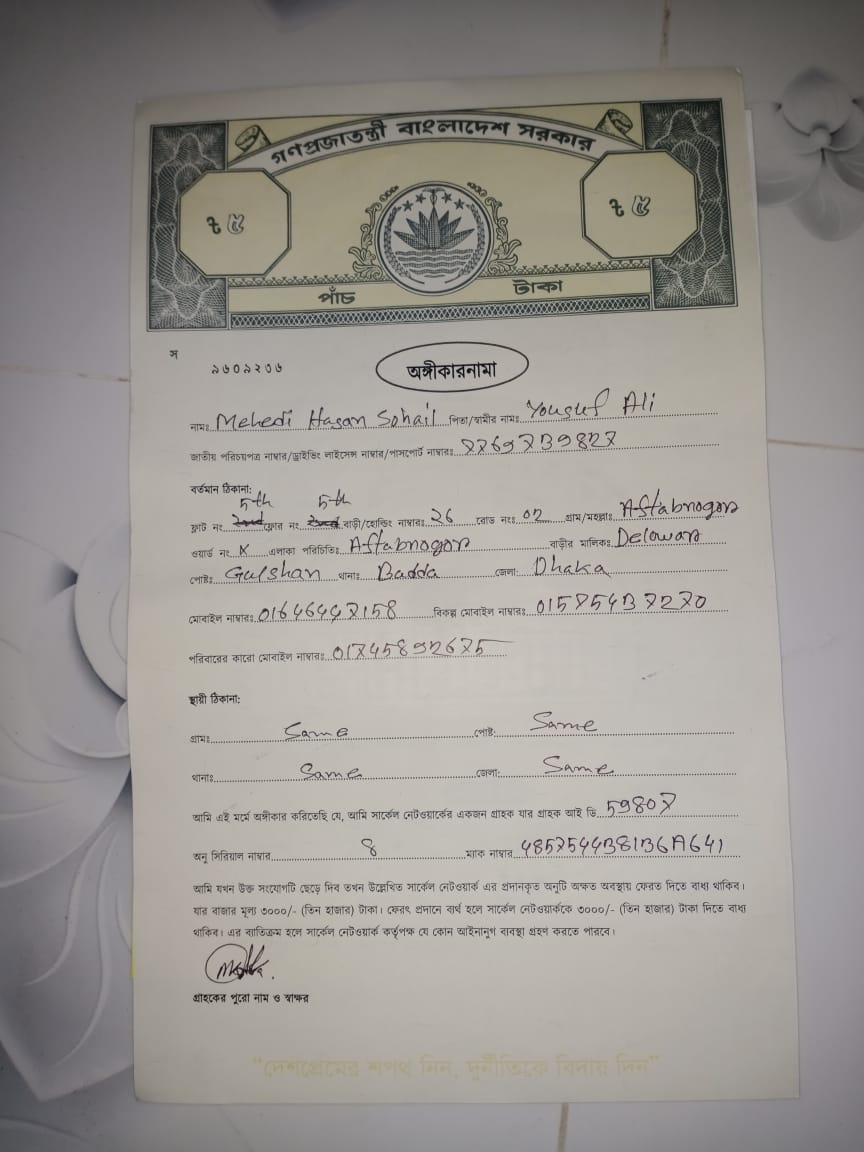 গণপ্রজাতন্ত্রী বাংলাদেশ সরকার
৳ ৫ ৳ ৫
পাঁচ টাকা
স ৯৬০৯২৩৬
অঙ্গীকারনামা
নামঃ Mehedi Hasan Sohail পিতা/স্বামীর নামঃ Yousuf Ali
জাতীয় পরিচয়পত্র নাম্বার/ড্রাইভিং লাইসেন্স নাম্বার/পাসপোর্ট নাম্বারঃ
বর্তমান ঠিকানা:
5th 5th
ফ্লাট নং ফ্লোর নং বাড়ী/হোল্ডিং নাম্বারঃ 26 রোড নংঃ 02 গ্রাম/মহল্লাঃ Aftabnogor
ওয়ার্ড নং X এলাকা পরিচিতিঃ Aftabnogor বাড়ীর মালিকঃ Delowar
পোষ্টঃ Gulshan থানাঃ Badda জেলা: Dhaka
মোবাইল নাম্বারঃ বিকল্প মোবাইল নাম্বারঃ
পরিবারের কারো মোবাইল নাম্বারঃ
স্থায়ী ঠিকানা:
গ্রামঃ Same পোষ্ট: Same
থানাঃ Same জেলা: Same
আমি এই মর্মে অঙ্গীকার করিতেছি যে, আমি সার্কেল নেটওয়ার্কের একজন গ্রাহক যার গ্রাহক আই ডি
অনু সিরিয়াল নাম্বার 8 ম্যাক নাম্বার
আমি যখন উক্ত সংযোগটি ছেড়ে দিব তখন উল্লেখিত সার্কেল নেটওয়ার্ক এর প্রদানকৃত অনুটি অক্ষত অবস্থায় ফেরত দিতে বাধ্য থাকিব।
যার বাজার মূল্য ৩০০০/- (তিন হাজার) টাকা। ফেরৎ প্রদানে ব্যর্থ হলে সার্কেল নেটওয়ার্ককে ৩০০০/- (তিন হাজার) টাকা দিতে বাধ্য
থাকিব। এর ব্যতিক্রম হলে সার্কেল নেটওয়ার্ক কর্তৃপক্ষ যে কোন আইনানুগ ব্যবস্থা গ্রহণ করতে পারবে।
গ্রাহকের পুরো নাম ও স্বাক্ষর
“দেশপ্রেমের শপথ নিন, দুর্নীতিকে বিদায় দিন”